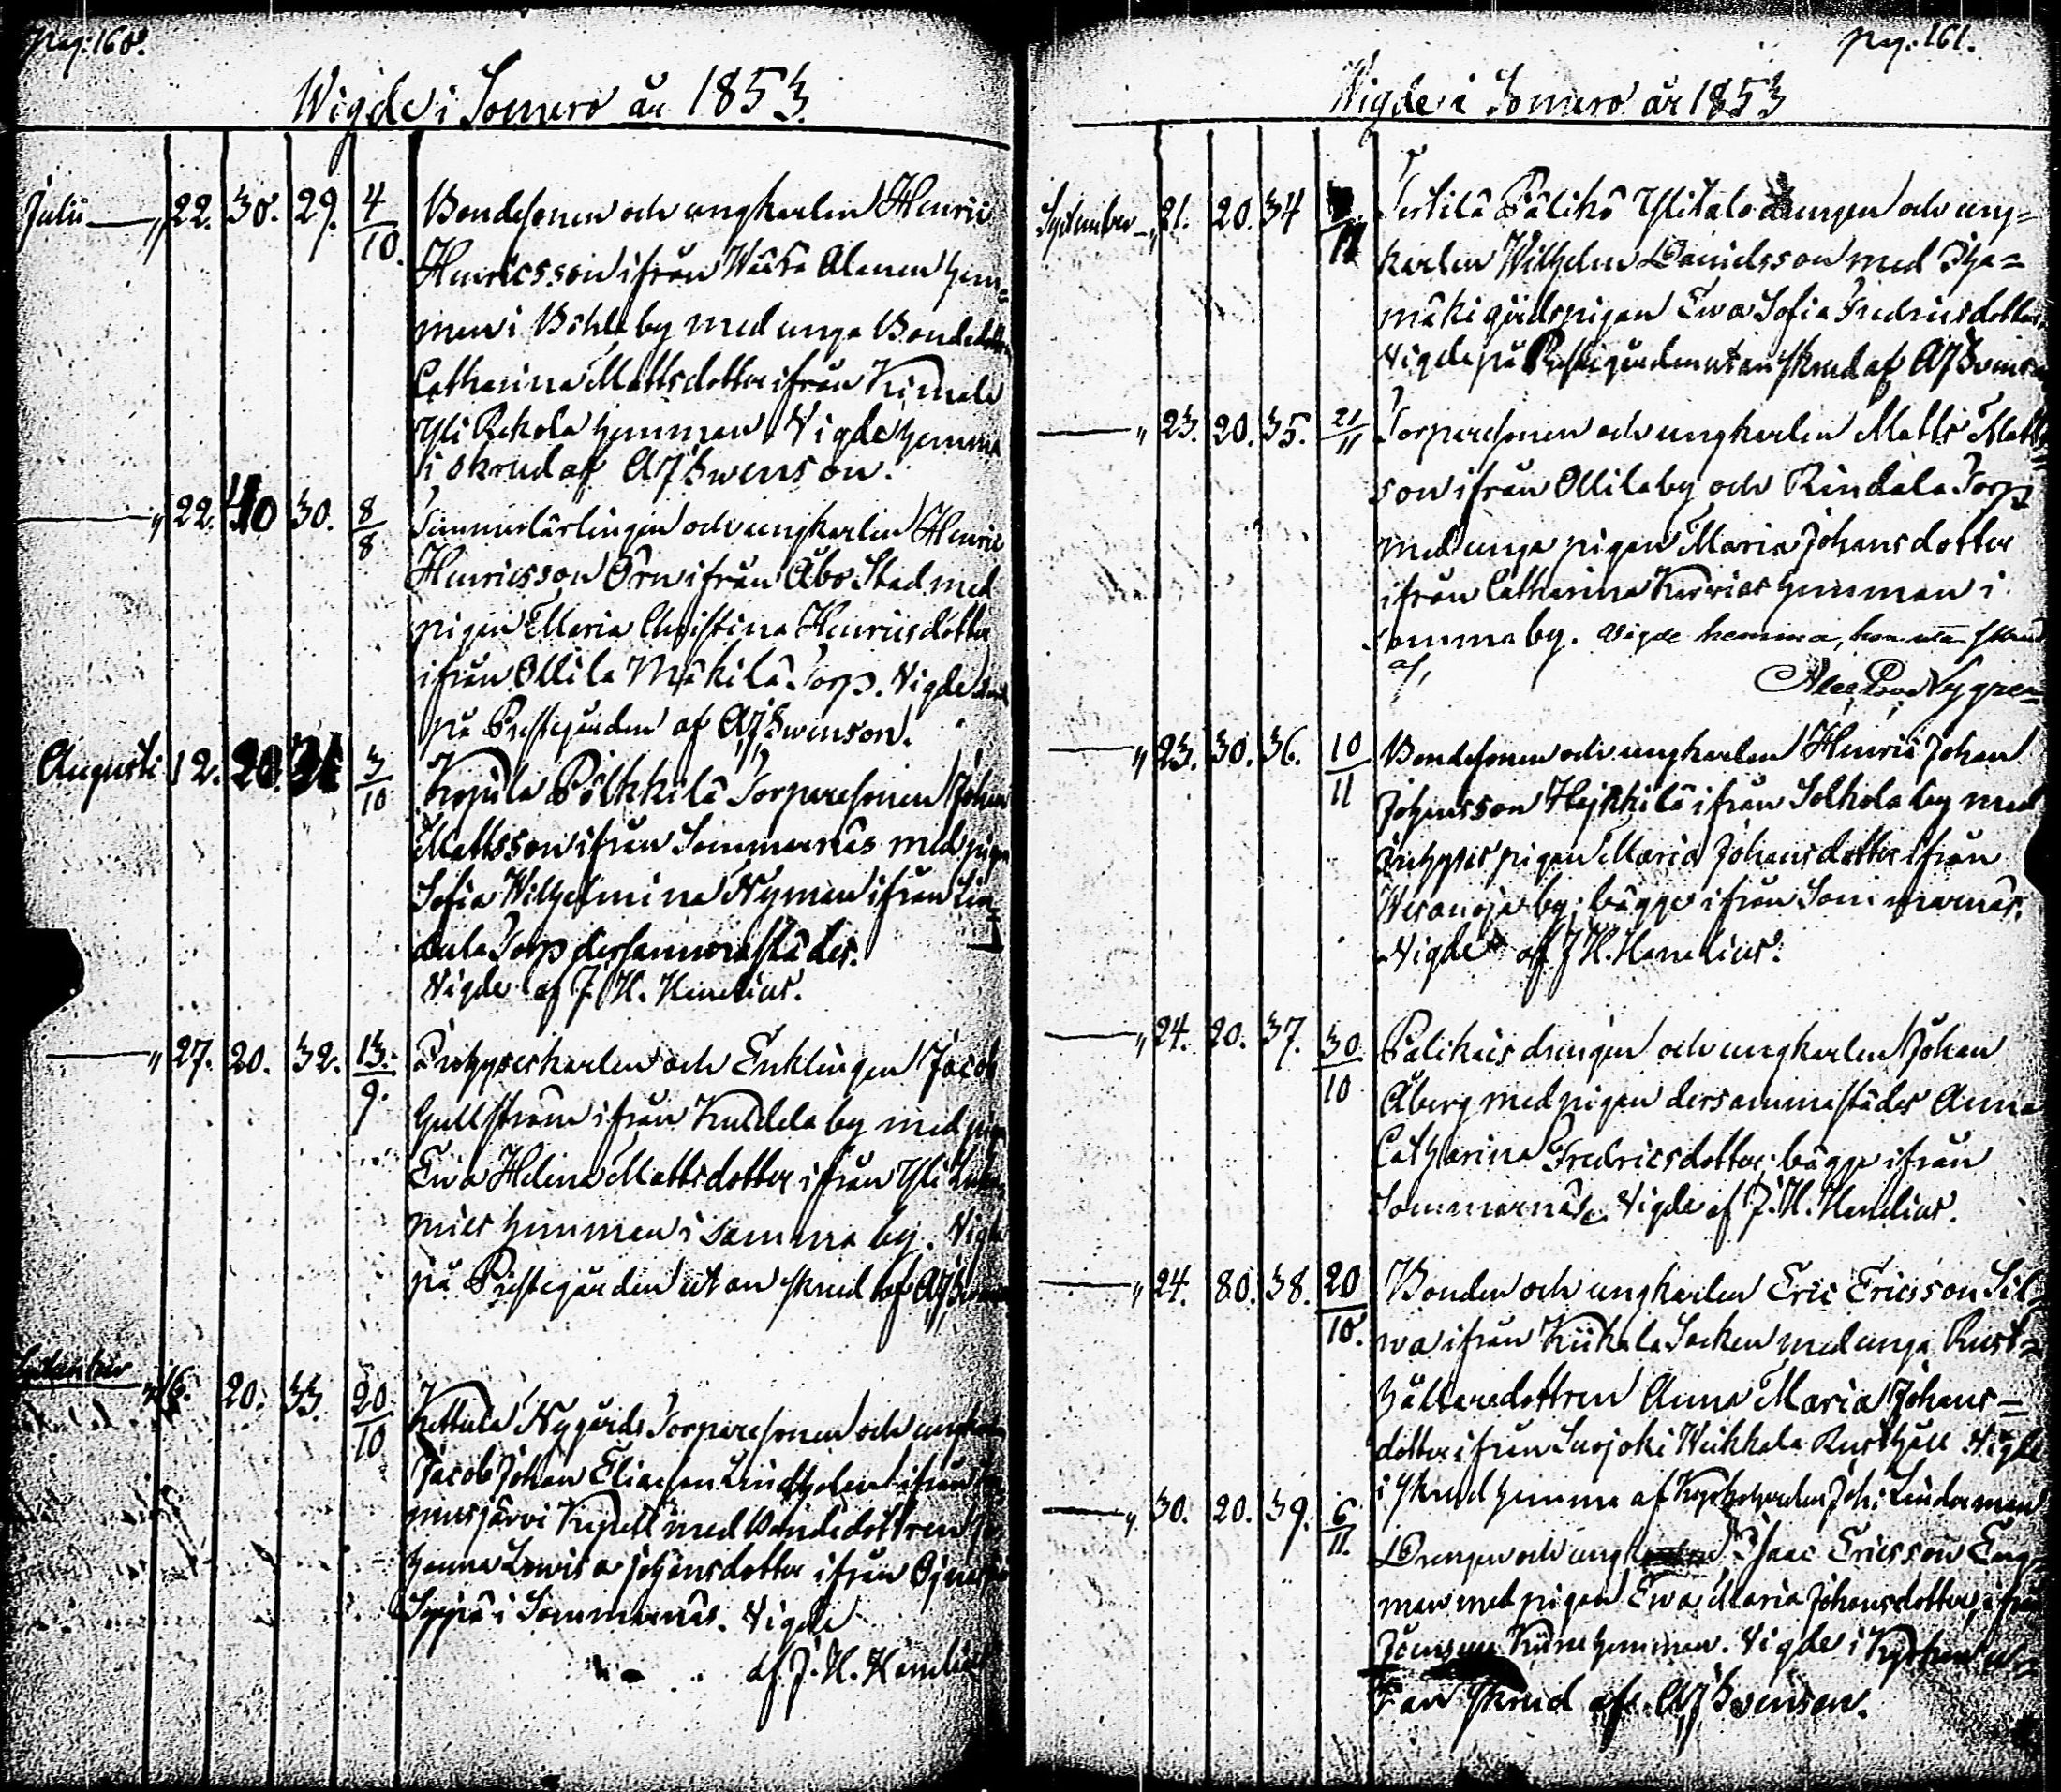 pag: 160.
Wigde i Somero år 1853.
Julii — „ 22. 30. 29. 4/10. Bondesonen och ungkarlen Henric
Henricsson ifrån Alanen hem=
man i by med unga Bondedottren
Catharina Mattsdotter ifrån Kimala
Yli Rekola hemman. Wigde hemma
i skrud af AJ Swenson.
— „ 22. 40 30. 8/8 Timmerlärlingen och ungkarlen Henric
Henricsson Örn ifrån Åbo Stad med
pigan Maria Christina Henricsdotter
ifrån Ollila Mäkilä Torp. Wigde
på Prestegården af AJ Swenson.
Augusti 12. 20. 31 3/10 Pölkkilä Torparesonen Johan
Mattsson ifrån Sommarnäs med pigan
Sofia Wilhelmina Nyman ifrån Lin=
dula Torp dersammastädes.
Wigde af J. H. Henelius.
— „ 27. 20. 32. 13./9. Inhyseskarlen och Enklingen Jacob
Gullström ifrån by med pigan
Ewa Helena Mattsdotter ifrån Yli
hemman i samma by. Wigde
på Prestegården utan skrud af AJ Swenson
September „ 16. 20. 33. 20/10 Kettula Nygårds Torparesonen och
Jacob Johan Eliasson Lindholm ifrån
med Bondedottren
Lowisa Johansdotter ifrån
Seppä i Sommarnäs. Wigde
af J. H. Henelius
pag. 161.
Wigde i Somero år 1853
September — „ 21. 20. 34 Terttilä Pälikö Ylitalo drengen och ung=
karlen Wilhelm Danielsson med
mäki gårdspigan Ewa Sofia Fredricsdotter.
Wigde på Prestegården utan skrud af AJ Swenson
— „ 23. 20. 35. 21/11 Torparesonen och ungkarlen Matts Matts=
son ifrån Ollila by och Rindala Torp
med unga pigan Maria Johansdotter
ifrån Catharina hemman i
samma by. Wigde hemma, hon utan skrud
af, Nygren
— „ 23. 30. 36. 10/11 Bondesonen och ungkarlen Henric Johan
Johansson Heikkilä ifrån Solkola by med
inhyses pigan Maria Johansdotter ifrån
by; bägge ifrån Sommarnäs.
Wigde af J H. Henelius.
— „ 24. 20. 37. 30/10 Palikais drengen och ungkarlen Johan
Åberg med pigan dersammastädes Anna
Catharina Fredricsdotter; bägge ifrån
Sommarnäs. Wigde af J. H. Henelius.
— „ 24. 80. 38. 20/10. Bonden och ungkarlen Eric Ericsson Sil=
wa ifrån Kiikala Socken med unga Rust=
hållaredottren Anna Maria Johans=
dotter ifrån Suojoki Weikkala Rusthåll Wigde
i skrud hemma af Kyrkoherden Joh: Linderman
— „ 30. 20. 39. 6/11. Drengen och ungkarlen Isaac Ericsson Eng=
man med pigan Ewa Maria Johansdotter, ifrån
hemman. Wigde i Kyrkan u=
tan skrud af AJ Swenson.